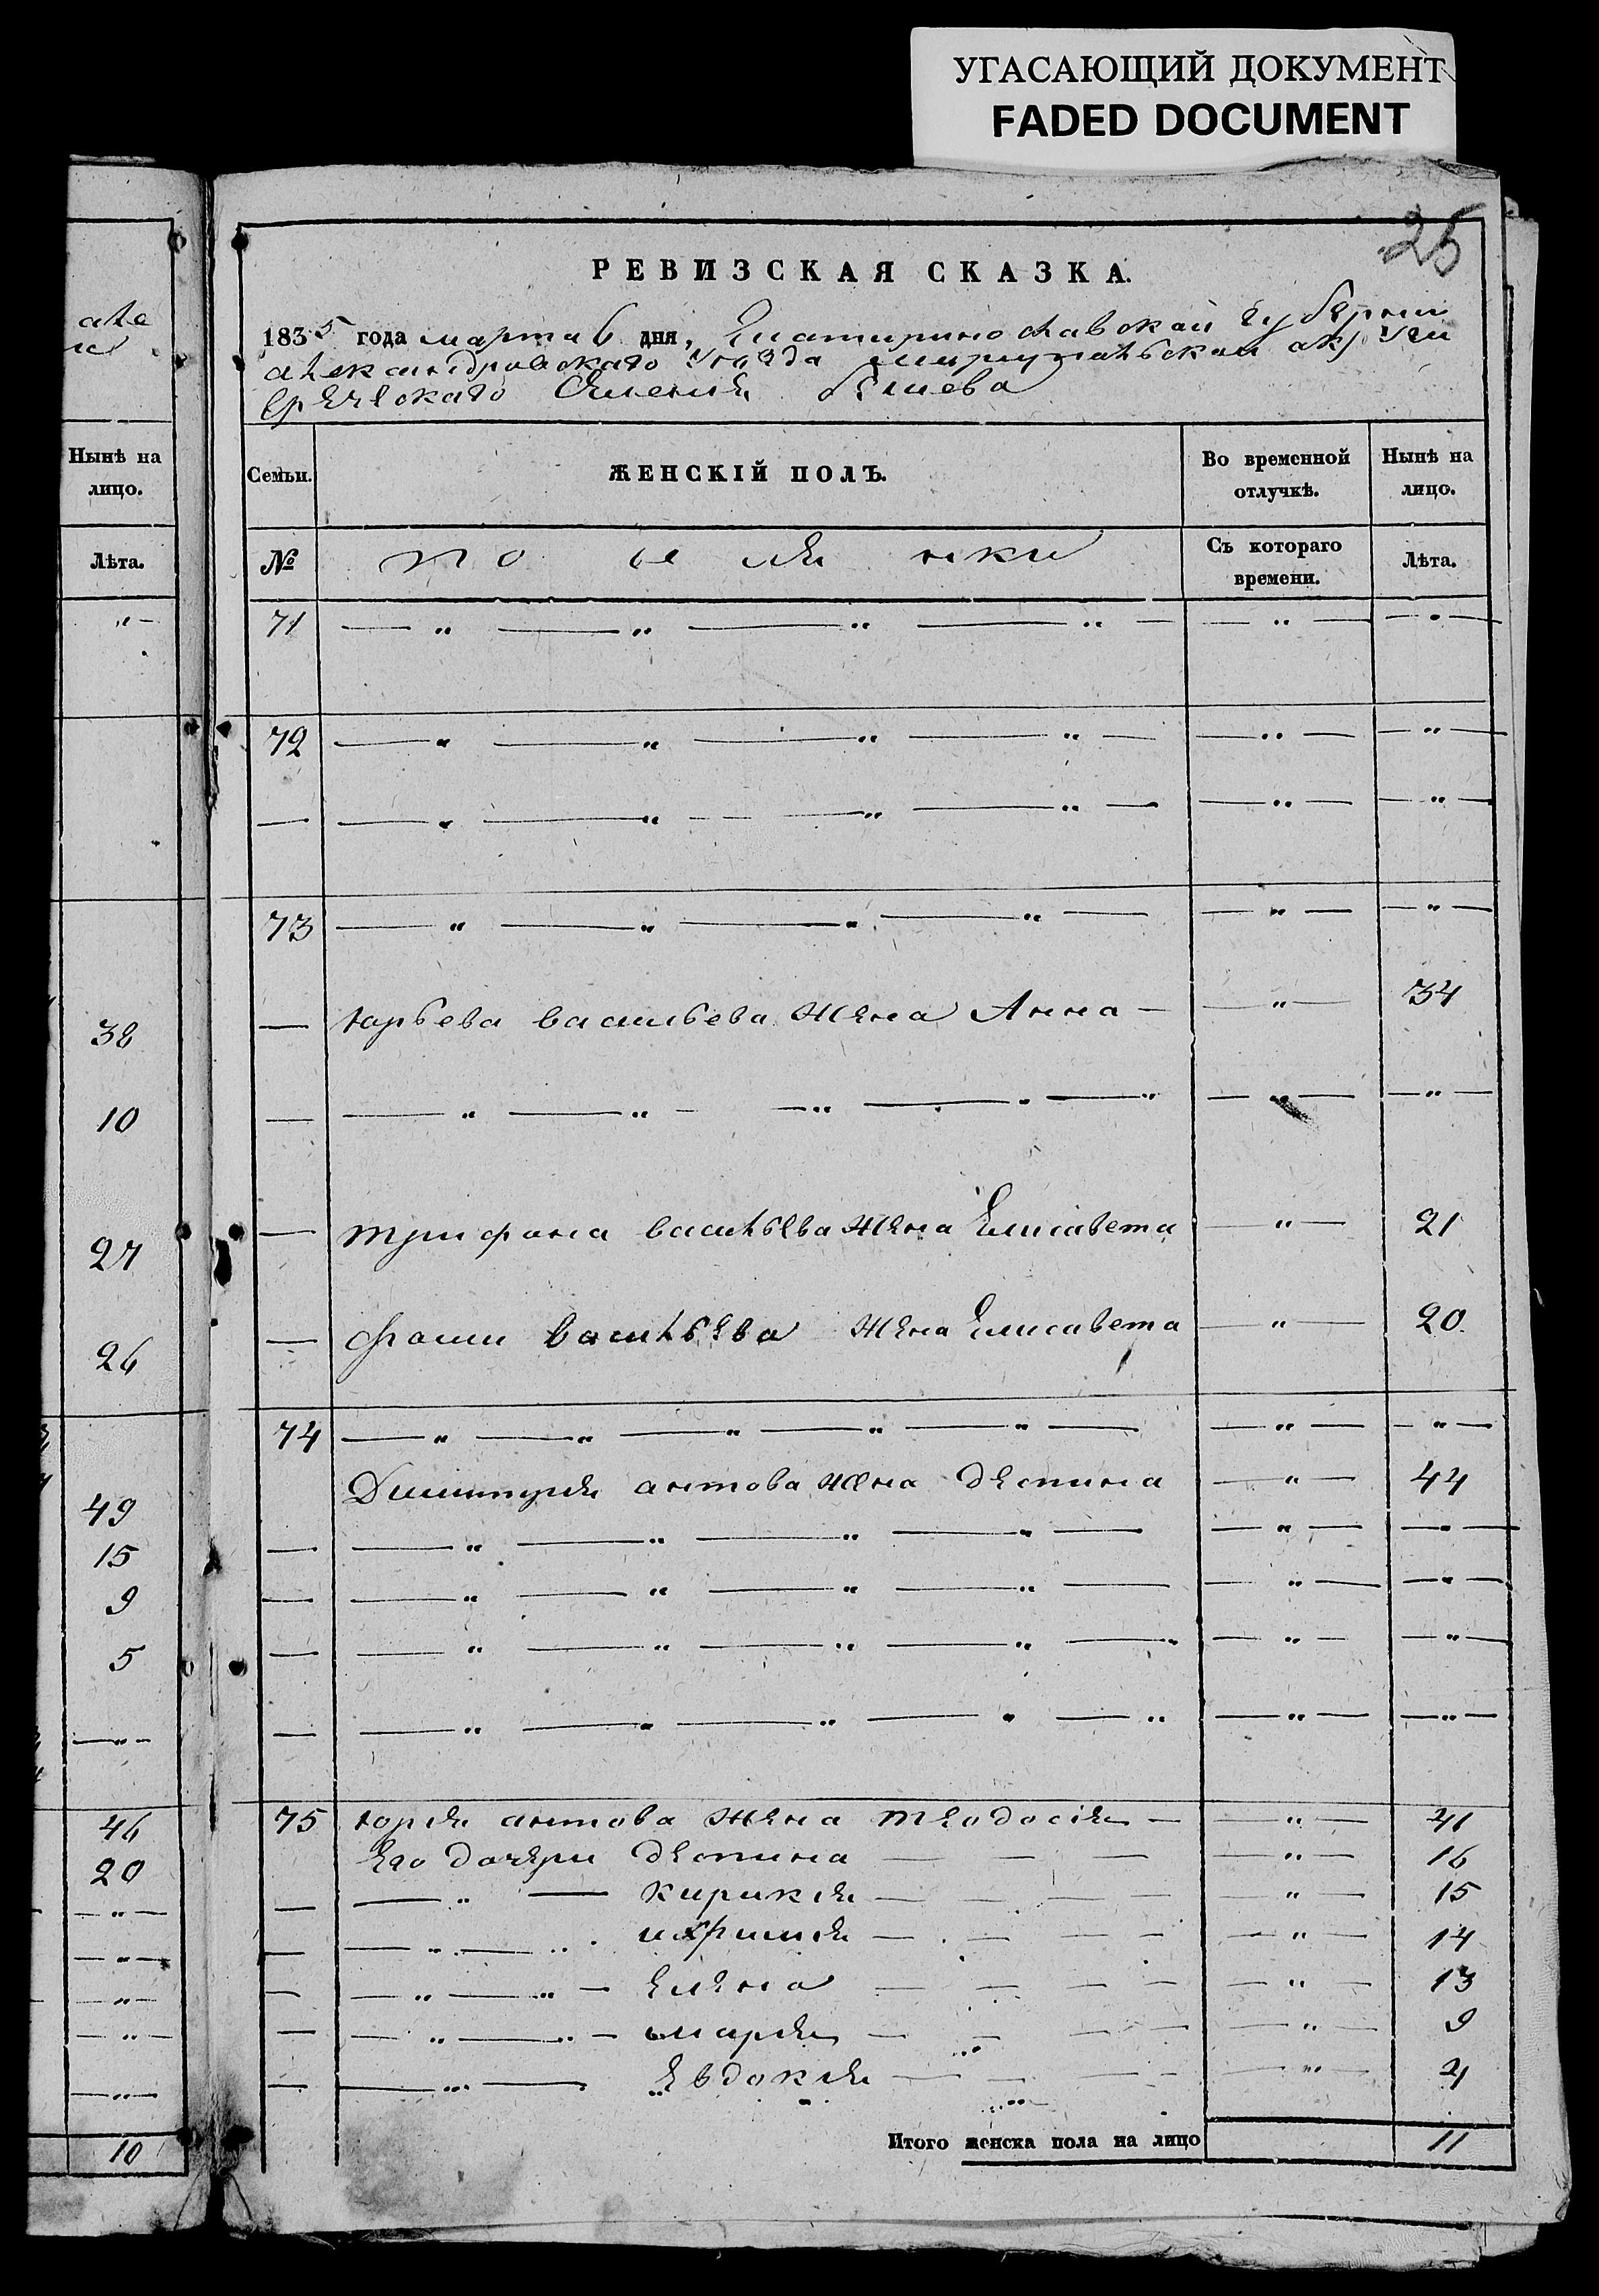 УГАСАЮЩИЙ ДОКУМЕНТ
FADED DOCUMENT
25
РЕВИЗСКАЯ СКАЗКА.
1835 года марта 6 дня, Екатиринославской Губернии
александровскаго уезда мариупальской округи
Греческаго Селения бешева
Нынѣ на лицо.
Семьи.
ЖЕНСКІЙ ПОЛЪ.
Во временной отлучкѣ.
Нынѣ на лицо.
Лѣта.
№
поселянки
Съ котораго времени.
Лѣта.
71
72
73
38
Юрьева васильева жена Анна 34
10
27
трифона васильева жена Елисавета 21
26
фоми васильева жена Елисавета 20
74
49
Димитрия антова жена деспина 44
15
9
5
46
75 юрия антова жена теодосія 41
20
Его дочери деспина 16
кирикия 15
14
Елена 13
мария 9
Евдокия 4
10
Итого женска пола на лицо 11